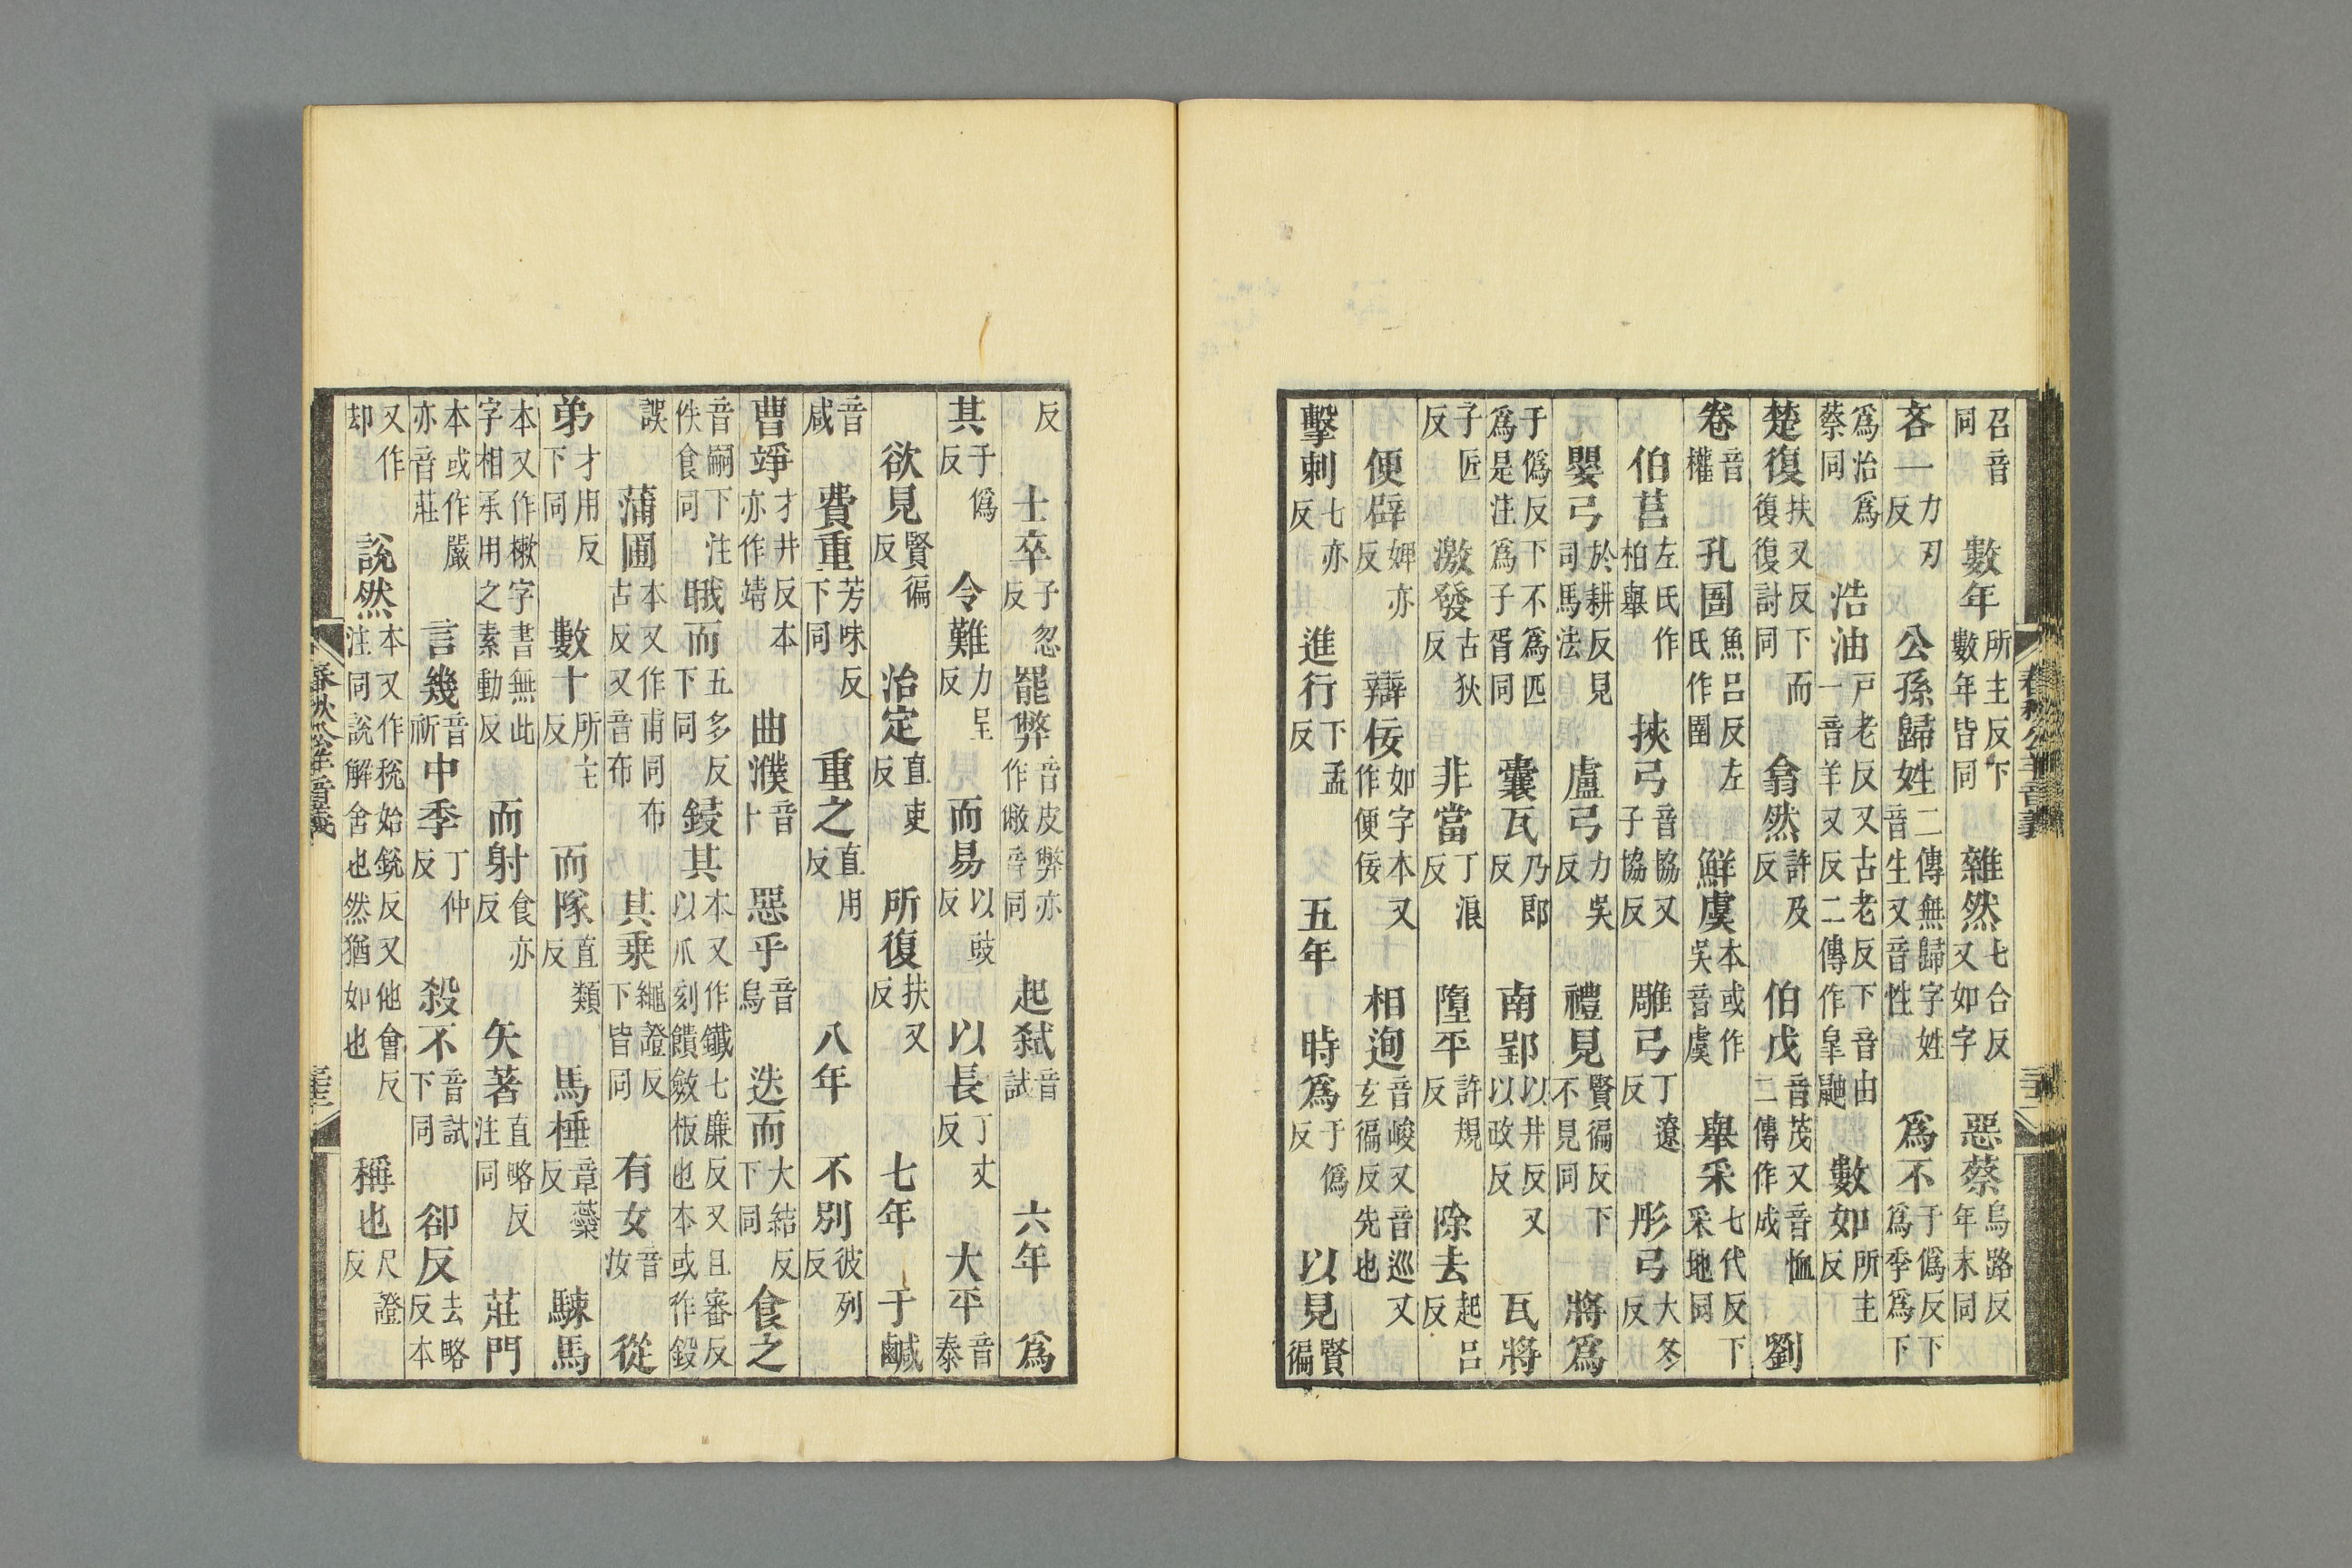 召音同 數年所主反下數年皆同 雜然七合反又如字 惡蔡烏路反年末同
吝一力刃反 公孫歸姓二傳無歸字姓音生又音性 爲不于僞反下爲季爲下
爲治爲蔡同 浩油戸老反又古老反下音由一音羊又反二傳作皐鼬 數如所主反
楚復扶又反下而復復討同 翕然許及反 伯戊音茂又音恤二傳作成 劉
卷音權 孔圄魚呂反左氏作圉 鮮虞本或作吳音虞 舉采七代反下采地同
伯莒左氏作柏舉 挾弓音協又子協反 雕弓丁遼反 彤弓大冬反
嬰弓於耕反見司馬法 盧弓力吳反 禮見賢徧反下不見同 將爲
于僞反下不爲匹爲是注爲子胥同 囊瓦乃郎反 南郢以井反又以政反 瓦將
子匠反 激發古狄反 非當丁浪反 隳平許規反 除去起呂反
便辟婢亦反 辯佞如字本又作便佞 相迿音峻又音巡又玄徧反先也
擊刺七亦反 進行下孟反 五年 時爲于僞反 以見賢徧
反 士卒子忽反 罷弊音皮弊亦作敝音同 起弒音試 六年 爲
其于僞反 令難力呈反 而易以豉反 以長丁丈反 大平音泰
欲見賢徧反 治定直吏反 所復扶又反 七年 于鹹
音咸 費重芳味反下同 重之直用反 八年 不別彼列反
曹竫才井反本亦作靖 曲濮音卜 惡乎音烏 迭而大結反下同 食之
音嗣下注佚食同 睋而五多反下同 鋟其本又作鐵七廉反又且審反以爪刻饋斂板也本或作鍛
誤 蒲圃本又作甫同布古反又音布 其乗繩證反下皆同 有女音汝 從
弟才用反下同 數十所主反 而隊直類反 馬棰章蘂反 駷馬
本又作楸字書無此字相承用之素動反 而射食亦反 矢著直略反注同 莊門
本或作嚴亦音莊 言幾音祈 中季丁仲反 殺不音試下同 卻反去略反本
又作却 說然本又作稅始銳反又他會反注同說解舍也然猶如也 稱也尺證反
春秋公羊音義
春秋公羊音義